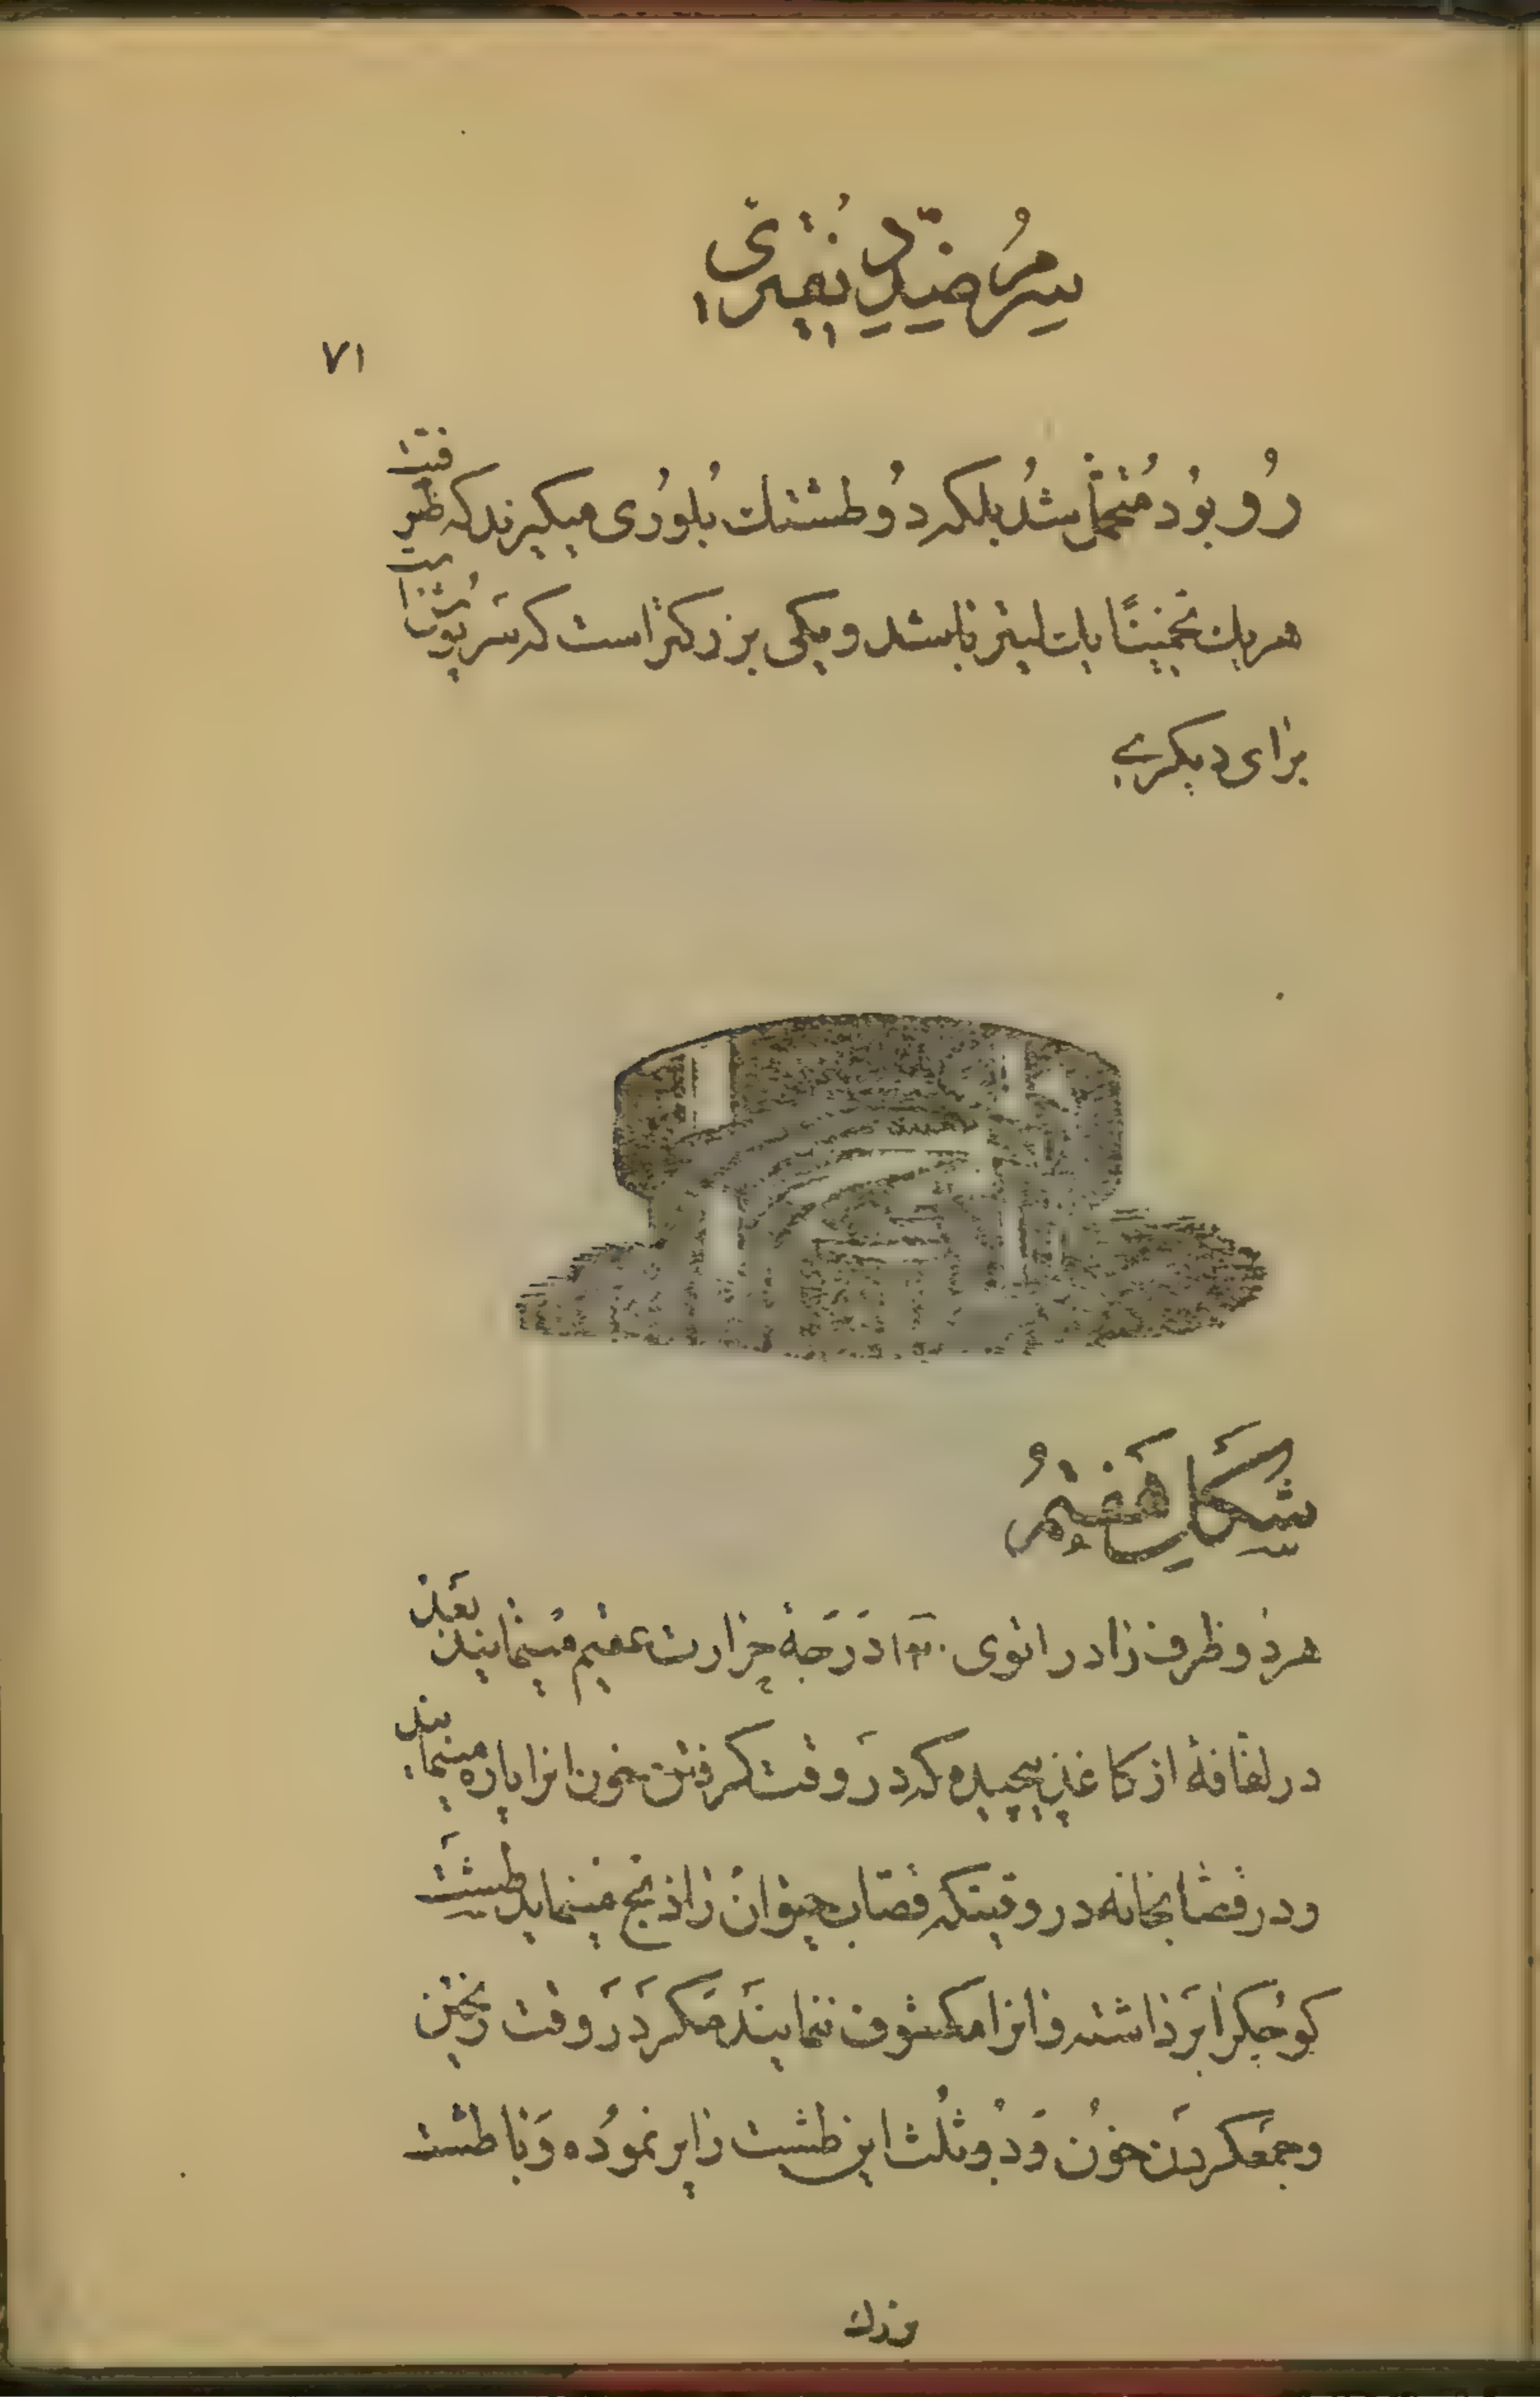 سرم ضدّ دیفتری
۷۱
رو بود متحمل شد بلکه دو طشتك بلوری میکیرند که ظرفیت
هریك تخمیناً یك لیتر باشد و یکی بزرکتر است که سرپوش است
برای دیکری
شکل هفتم
هر دو ظرف را در اتوی ۱۳۰ درجهٔ حرارت عقیم مینمایند بعد
در لفافهٔ از کاغذ پیچیده که در وقت کرفتن خون انرا پاره مینمایند
و در قصابخانه در وقتیکه قصاب حیوان را ذبح مینماید طشت
کوچکرا برداشته و انرا مکشوف ننمایند مکر در وقت ریختن
و جمعکردن خون و دو ثلث این طشت را پر نموده و با طشت
بزرك